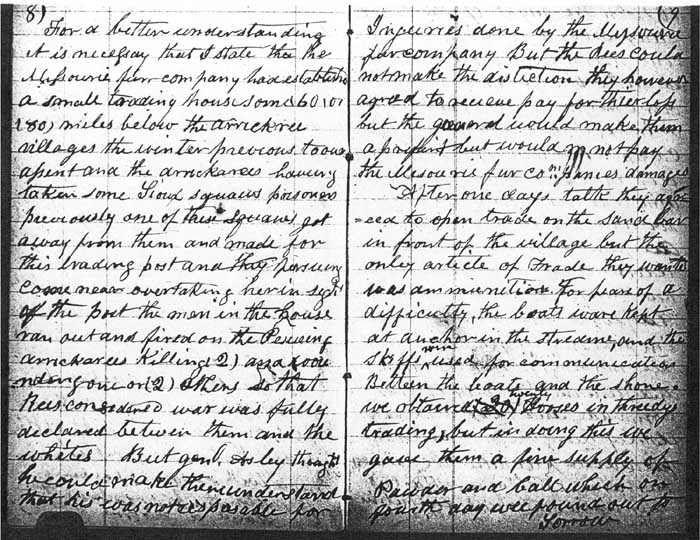 8)
For a better understanding
it is necessay that I state that the
Missourie furr company had establish
a small trading house some (60) or
(80) miles below the arrickree
villages the winter previous to our
and the arrickarees having
taken some Sioux squaws prisoners
previously one of these squaws got
away from them and made for
this trading post and they persuing
come near overtaking her in sight
of the post the men in the house
ran out and fired on the Persuing
arrickarees Killing (2) and wou
nding one or (2) others so that
Rees considered war was fully
declared betwen them and the
whites But genl. Asley thought
he could make them understand
that his was not resposable for
(9
Injuries done by the Missourie
fur company But the Rees could
not make the distiction they however
agreed to receive pay for thier loss
but the geneeral would make them
a present but would not pay
the Mesourie fur companies damages
After one days talk they agre
=eed to open trade on the sand bar
in front of the village but the
only article of Trade they wanted
was ammunition For feare of a
difficulty, the boats ware kept
at anchor in the streame, and the
skiffs were used for communication
Betteen the boats and the shore
we obtained (20) twenty Horses in three dys
trading, but in doing this we
gave them a fine supply of
Powder and ball which on
fourth day wee found out to
Sorrow